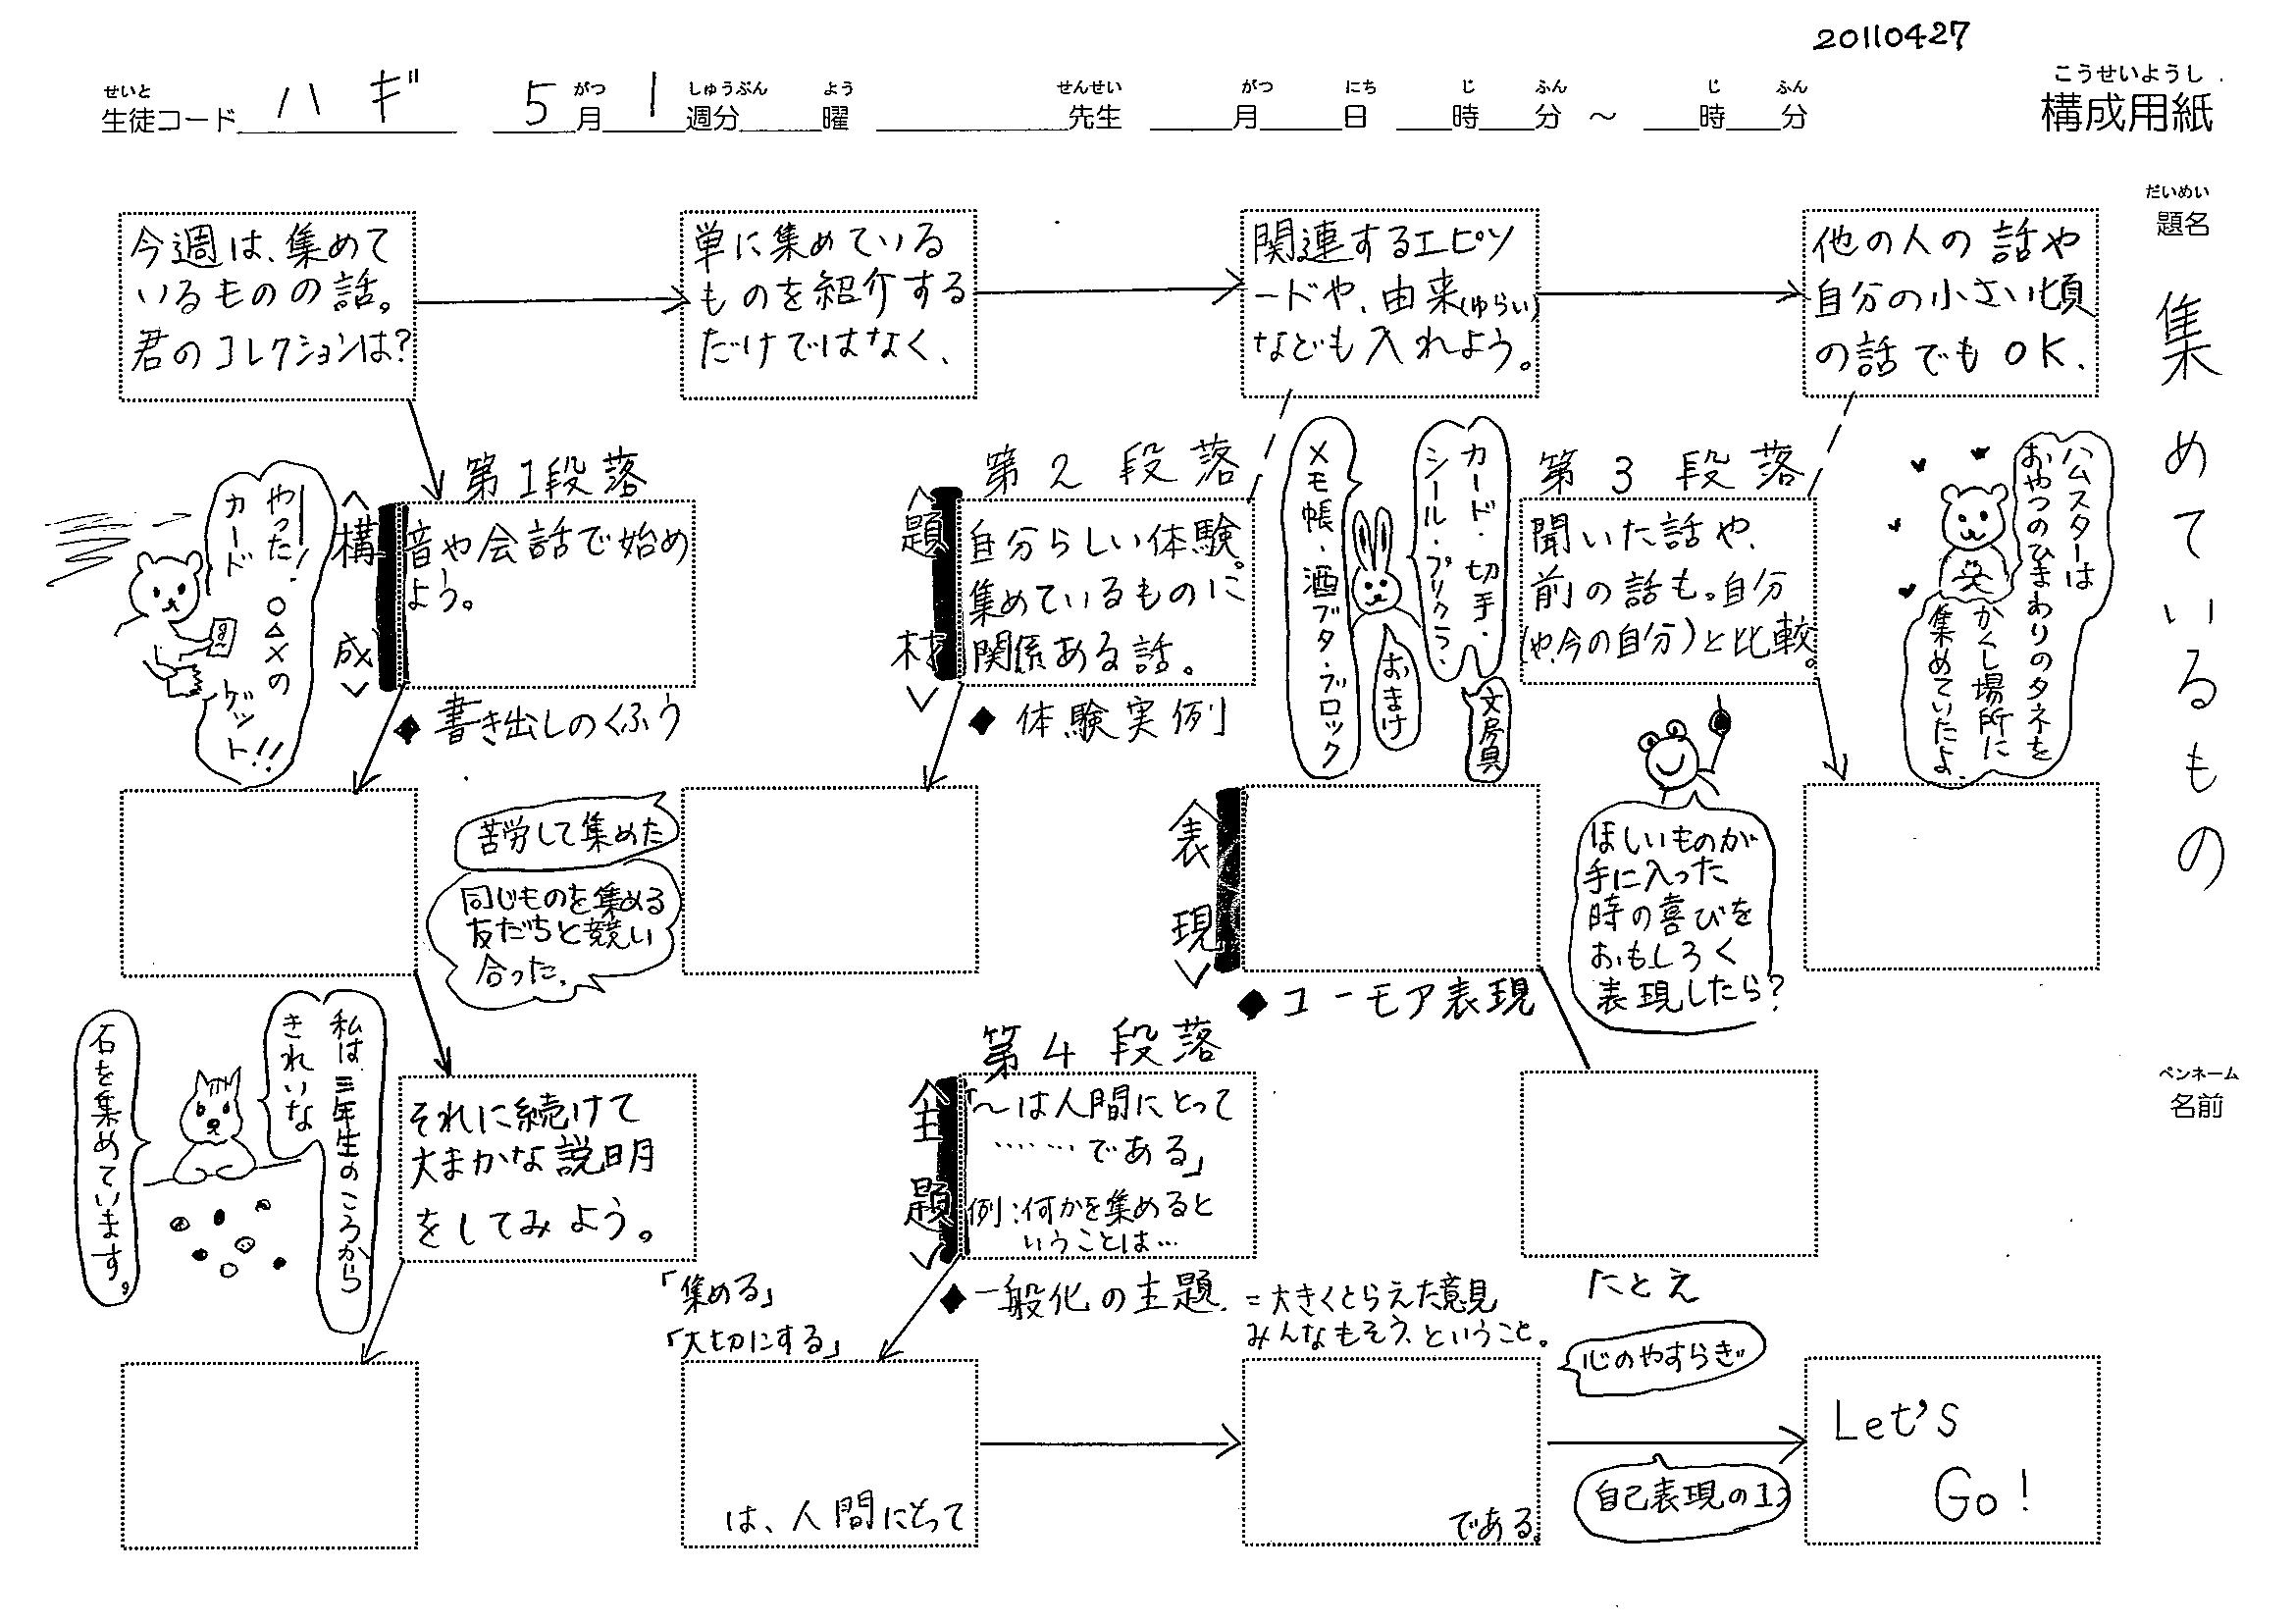 20110427
せいと
生徒コード ハギ 5月1週分 曜 先生 月 日 時 分 ～ 時 分
がつ しゅうぶん よう せんせい がつ にち じ ふん じ ふん
こうせいようし
構成用紙
だいめい
題名
集めているもの
ペンネーム
名前
今週は、集めて
いるものの話。
君のコレクションは?
単に集めている
ものを紹介する
だけではなく、
関連するエピソ
ードや、由来(ゆらい)
なども入れよう。
他の人の話や
自分の小さい頃
の話でもOK.
第1段落
<構成>
音や会話で始め
よう。
◆書き出しのくふう
やったー!
○△×の
カード
ゲット!!
第2段落
<題材>
自分らしい体験。
集めているものに
関係ある話。
◆体験実例
カード・切手・
シール・プリクラ・
メモ帳・酒ブタ・ブロック
おまけ
文房具
第3段落
聞いた話や、
前の話も。自分
(や、今の自分)と比較。
ハムスターは
おやつのひまわりのタネを
かくし場所に
集めていたよ.
苦労して集めた
同じものを集める
友だちと競い
合った.
<表現>
◆ユーモア表現
ほしいものが
手に入った
時の喜びを
おもしろく
表現したら?
私は、三年生のころから
きれいな
石を集めています。
それに続けて
大まかな説明
をしてみよう。
第4段落
<主題>
「～は人間にとって
……である」
例:何かを集めると
いうことは…
◆一般化の主題. =大きくとらえた意見
みんなもそう、ということ。
たとえ
「集める」
「大切にする」
は、人間にとって
である。
心のやすらぎ
自己表現の1つ
Let's
Go!